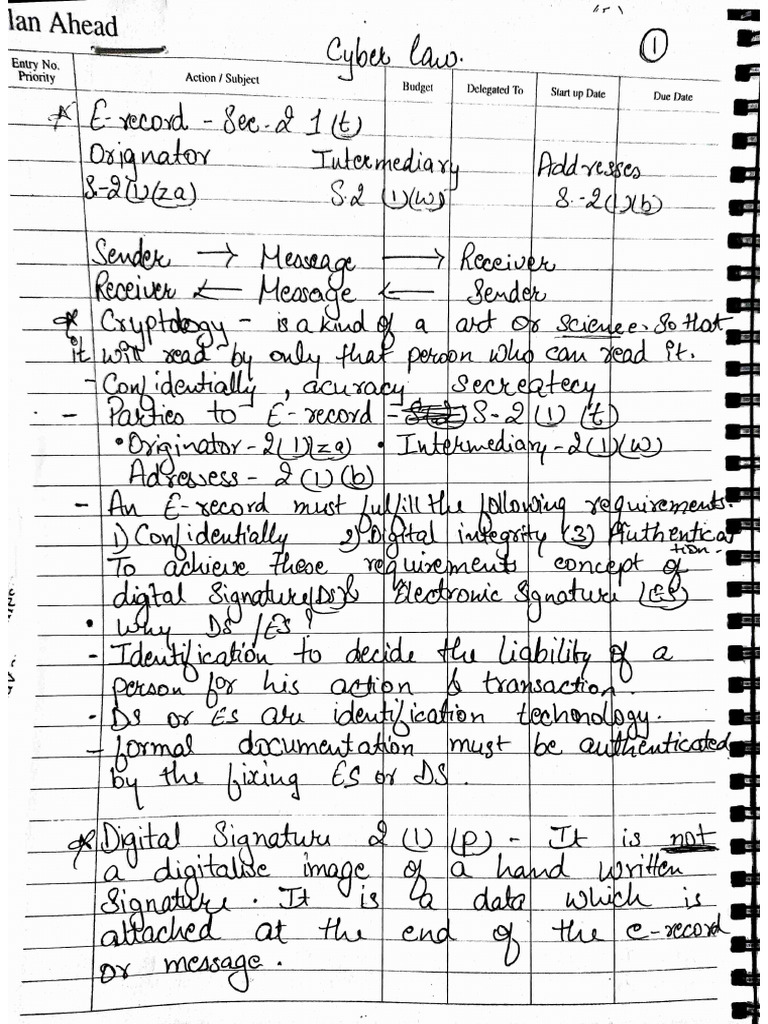 lan Ahead
Cyber law.
1
Entry No. Priority
Action / Subject
Budget
Delegated To
Start up Date
Due Date
* E-record - Sec. - 2 1 (t)
Orignator Intermediary Addresses
S-2(1)(za) S.2 (1)(w) S.-2(1)(b)
Sender → Message → Receiver
Receiver ← Message ← Sender
* Cryptology - is a kind of a art or science. So that
it will read by only that person who can read it.
- Confidentially, acuracy Secreatecy
- Parties to E-record - S-2 (1) (t)
• Originator - 2(1)(za) • Intermediary - 2(1)(w)
Adressess - 2 (1) (b)
- An E-record must fulfill the following requirements.
1) Confidentially 2) Digital integrity (3) Authentica
tion.
To achieve these requirements concept of
digital Signature (DS) & Electronic Signature (ES)
• Why DS / ES ?
- Identification to decide the liability of a
person for his action & transaction.
- DS or ES are identification techonology.
- formal documentation must be authenticated
by the fixing ES or DS.
* Digital Signature 2 (1) (p) - It is not
a digitalise image of a hand written
Signature. It is a data which is
attached at the end of the e-record
or message.